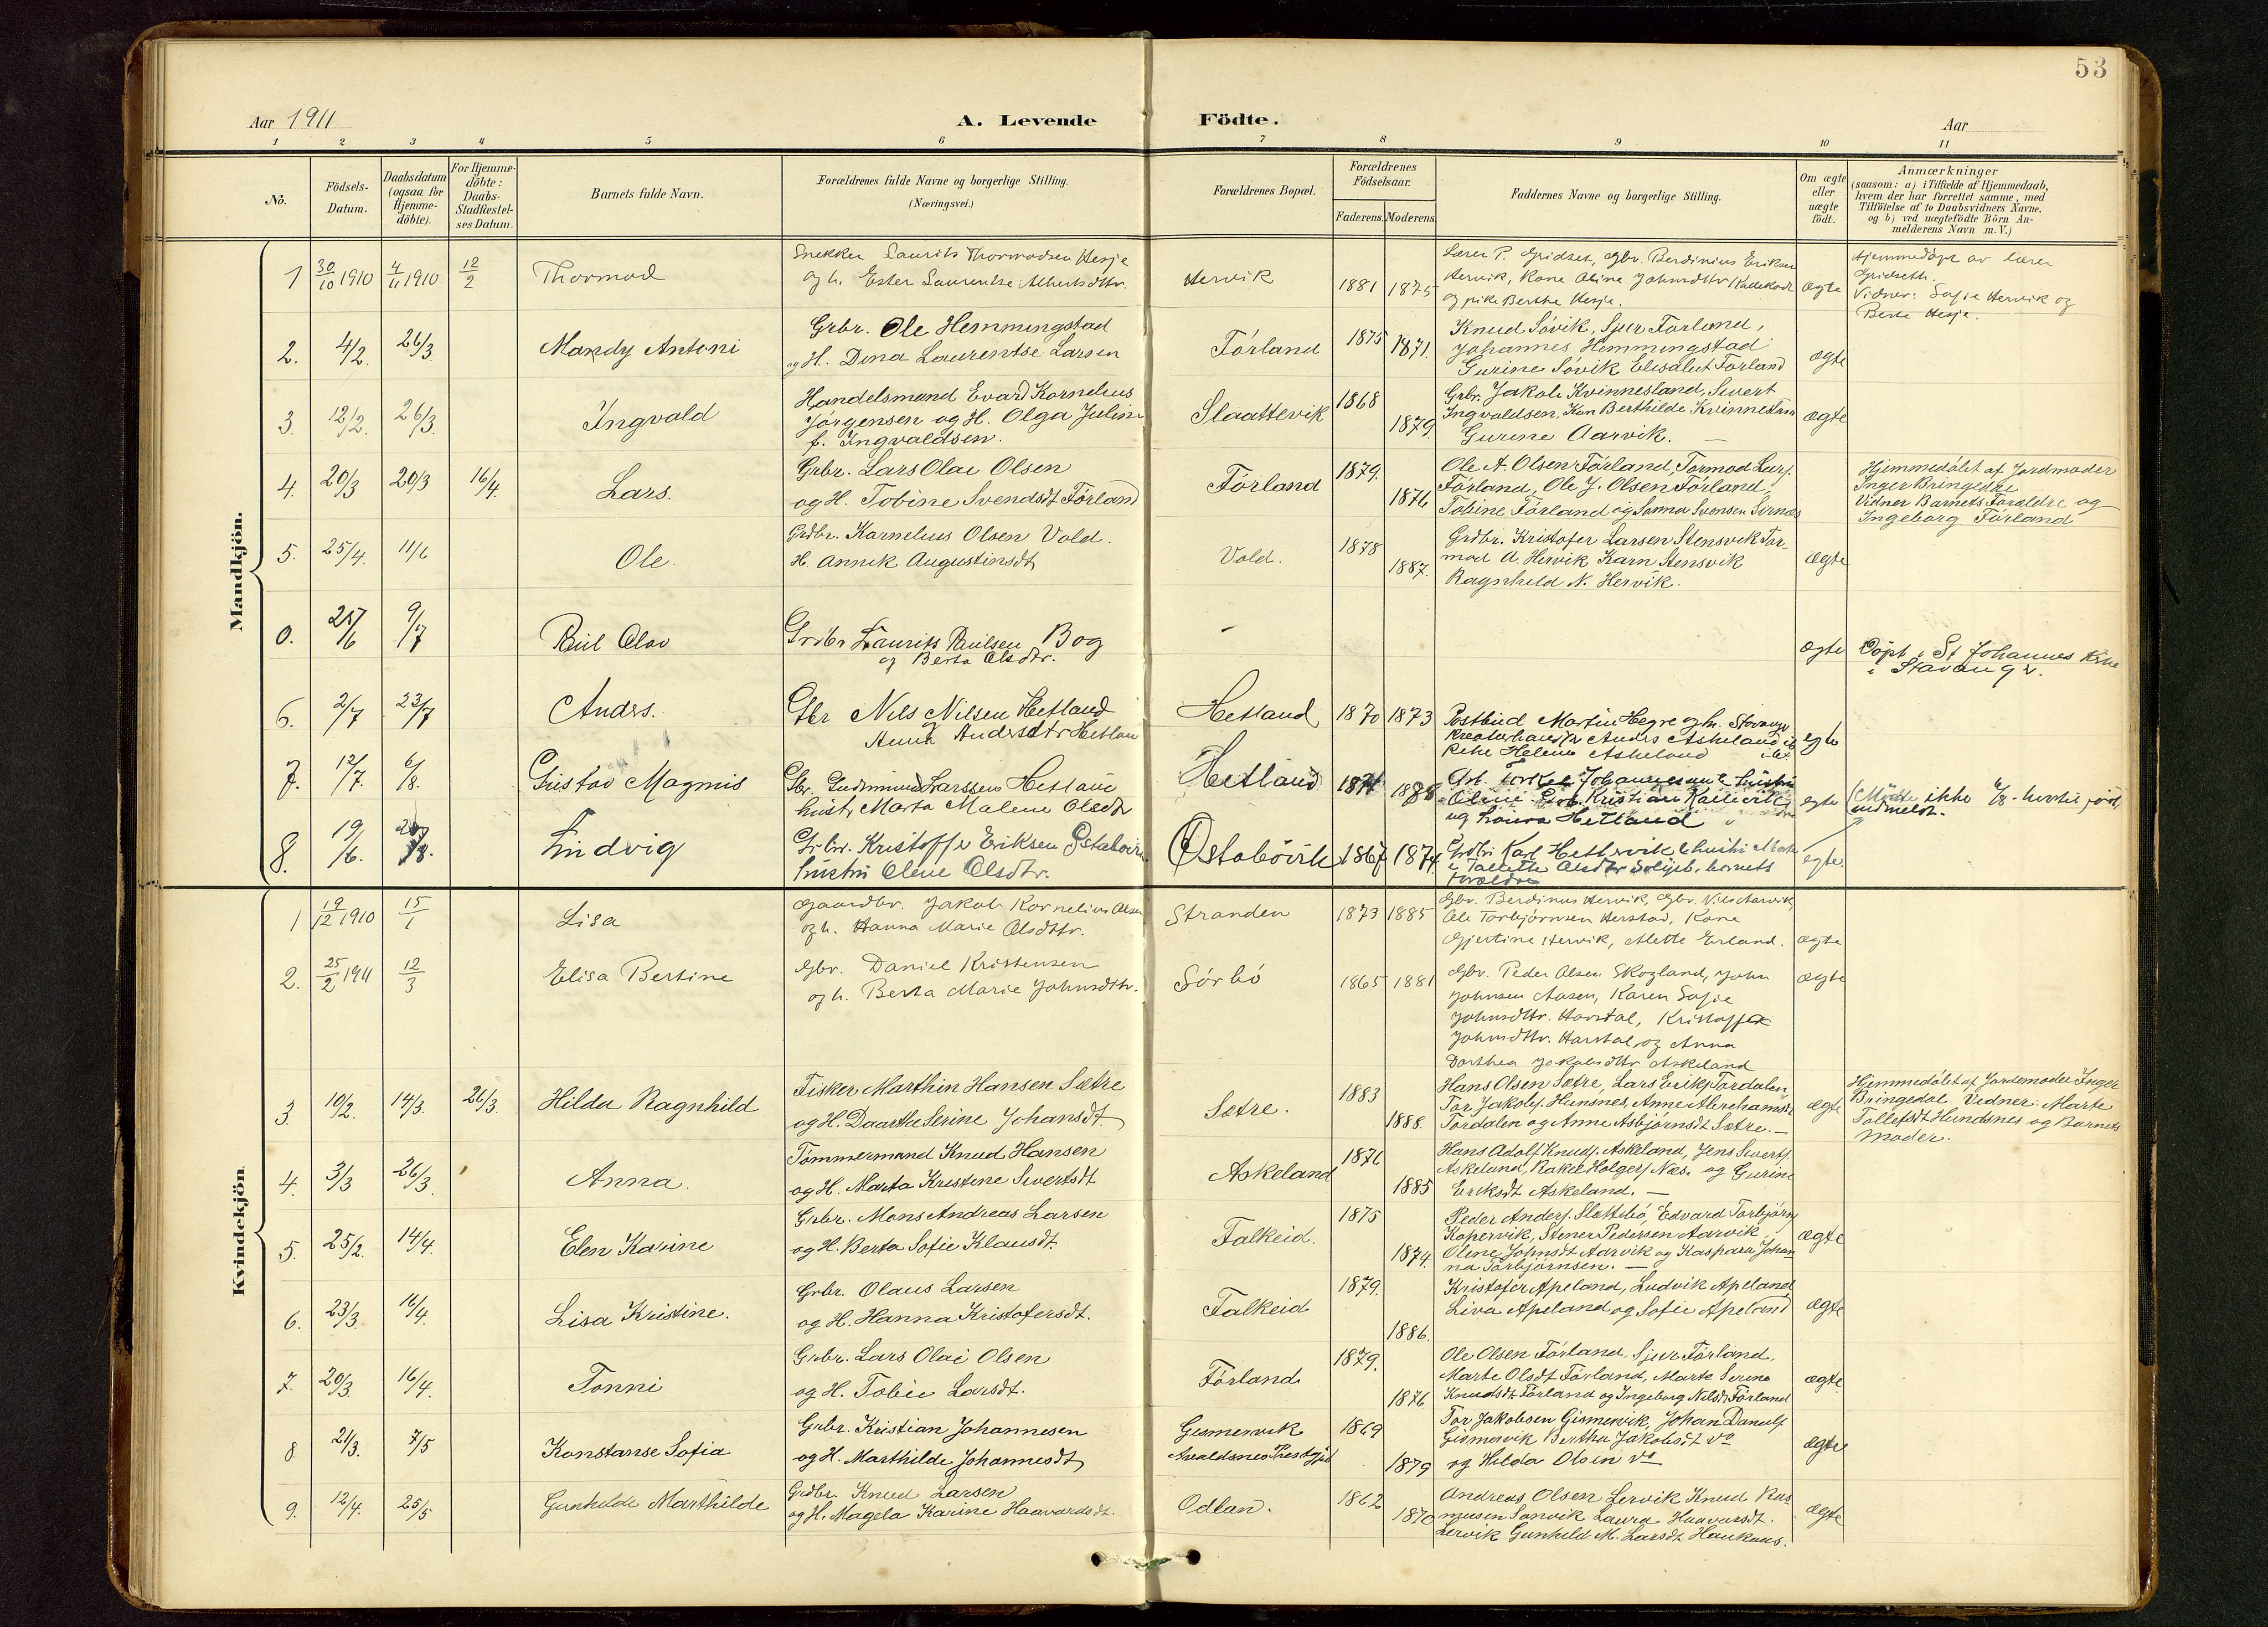 53
Aar 1911
A. Levende Födte.
Aar
1 2 3 4 5 6 7 8 9 10 11
No.
Födsels-Datum.
Daabsdatum (ogsaa for Hjemme-döbte).
For Hjemme-döbte: Daabs-Stadfæstel-ses Datum.
Barnets fulde Navn.
Forældrenes fulde Navne og borgerlige Stilling.
(Næringsvei.)
Forældrenes Bopæl.
Forældrenes Födselsaar.
Faderens. Moderens.
Faddernes Navne og borgerlige Stilling.
Om ægte eller uægte födt.
Anmærkninger
(saasom: a) i Tilfælde af Hjemmedaab,
hvem der har forrettet samme, med
Tilföielse af to Daabsvidners Navne,
og b) ved uægtefödte Börn An-
melderens Navn m. V.)
Mandkjön.
1 30/10 1910 4/11 1910 12/2 Thormod
Snekker Laurits Thormodsen Hesje
og h. Ester Laurentse Albertsdttr.
Hervik 1881 1875
Lærer P. Gridset, Gbr. Berdinius Eriksen
Hervik, Kone Oline Johnsdttr
og pike Berthe Hesje.
ægte
Hjemmedöpt av lærer
Gridseth.
Vidner: Sofie Hervik og
Berte Hesje.
2. 4/2. 26/3. Mandy Antoni
Grbr. Ole Hemmingstad
og H. Dina Laurentse Larsen
Förland 1875 1871.
Knud Sövik, Sjur Förland,
Johannes Hemmingstad
Gurine Sövik Elisabet Förland
ægte
3. 12/2. 26/3. Ingvald
Handelsmand Evard Kornelius
Jörgensen og H. Olga Juline
f. Ingvaldsen.
Slaattevik 1868 1879.
Grbr. Jakob Kvinnesland, Sivert
Ingvaldsen, Kon Berthilde
Gurine Aarvik. —
ægte
4. 20/3 20/3 16/4. Lars.
Grbr. Lars Olai Olsen
og H. Tobine Svendsdt Förland
Förland 1879. 1876
Ole A. Olsen Förland, Tormod Lars.
Förland, Ole J. Olsen Förland,
Tobine Förland og Sanna Svensen
Hjemmedöbt af Jordmoder
Inger Bringedal
Vidner Barnets Forældre og
Ingeborg Förland
5. 25/4. 11/6 Ole.
Grdbr. Kornelius Olsen Vold.
H. Annik Augustinsdt
Vold. 1878 1887.
Grdbr. Kristofer Larsen Stensvik Tor-
mod A. Hervik Karn Stensvik
Ragnhild N. Hervik.
ægte
0. 25/6 9/7 Paul Olav
Grdbr Laurits Paulsen Bog
og Berta Olsdtr.
ægte
Döpt i St Johannes Kirke
i Stavanger.
6. 2/7 23/7 Anders.
Gbr Nils Nilsen Hetland
og Anna Andersdtr Hetland
Hetland 1870 1873
Postbud Martin Hegre og h. Stavanger
Anders Askeland ib
Pike Helene Askeland ib.
egte
7. 12/7. 6/8. Gustav Magnus
Gbr. Gudmund Larssen Hetland
hustr. Marta Malene Olsdtr
Hetland
Kristian
og Laura Hetland
egte
Mödte ikke 6/8 -
indmeldt.
8. 19/6. Ludvig
Gr.br. Kristoffer Eriksen Östaböv
hustru Olene Olsdtr.
Ostabövik 1867 1874.
Grdbr. Karl Hettervik & hustru
Olsdtr
forældre
egte
Kvindekjön
1 19/12 1910 15/1 Lisa
Gaardbr. Jakob Kornelius Olsen
og h. Hanna Marie Olsdttr.
Stranden 1873 1885
Gbr. Berdinus Hervik, Gbr. Nils Aarvik,
Ole Torbjörnsen Herstad, Kone
Gjertine Hervik, Alette Erland.
ægte
2. 25/2 1911 12/3 Elisa Bertine
Gbr. Daniel Kristensen
og h. Berta Marie Johnsdttr.
Sörbö 1865 1881
Gbr. Peder Olsen Skogland, John
Johnsen Aasen, Karen Sofie
Johnsdttr. Harstal, Kristoffer
Johnsdttr. Harstal, og Anna
Dorthea Jakobsdttr Askeland
ægte
3. 10/2. 14/3. 26/3. Hilda Ragnhild
Fisker Marthin Hansen Sætre
og H. Daarthe Serine Johansdt.
Sætre. 1883 1888.
Hans Olsen Sætre, Lars Eriks. Tordalen,
Tor Jakobs. Hunsnes, Anne
Tordalen og Anne Asbjörnsdt Sætre. —
ægte
Hjemmedöbt af Jordemoder Inger
Bringedal Vidner: Marte
Tollefsdt Hundsnes og Barnets
Moder.
4. 3/3 26/3. Anna.
Tömmermand Knud Hansen
og H. Marta Kristine Sivertsdt
Askeland 1876 1885
Hans Adolf Knuds. Askeland, Jens Siverts.
Askeland, Rakel Holgers. Næs. og Gurine
Eriksdt Askeland. —
5. 25/2. 14/4. Elen Karine
Grbr. Mons Andreas Larsen
og H. Berta Sofie Klausdt.
Falkeid. 1875 1874.
Peder Anders. Slettebö, Edvard Torbjörn
Kopervik, Stener Pedersen Aarvik,
Oline Johnsdt Aarvik og Kaspara Johan
na Torbjörnsen. —
ægte
6. 23/3. 16/4. Lisa Kristine.
Grbr. Olaus Larsen
og H. Hanna Kristofersdt.
Falkeid 1879. 1886.
Kristofer Apeland, Ludvik Apeland
Liva Apeland og Sofie Apeland
ægte
7. 20/3 16/4. Tonni
Grbr. Lars Olai Olsen
og H. Tobie Larsdt.
Förland 1879. 1876
Ole Olsen Förland, Sjur Förland,
Marte Olsdt Förland, Marte Serine
Knudsdt Förland og Ingeborg Nilsdt Förland
ægte
8 21/3. 7/5 Konstanse Sofia
Grbr. Kristian Johannesen
og H. Marthilde Johannesdt
Gismervik
Avaldsnes Prestgjld
1869 1879
Tor Jakobsen Gismervik, Johan Daniels.
Gismervik Bertha Jakobsdt do
og Hilda Olsen do
ægte
9. 12/4. 25/5 Gunhilde Marthilde
Grdbr. Knud Larsen
og H. Magela Karine Haavardsdt.
Odlan. 1862 1870
Andreas Olsen Lervik Knud Ras
musen Sanvik Laura Haavarsdt.
Lervik Gunhild M. Larsdt Haukaas.
ægte